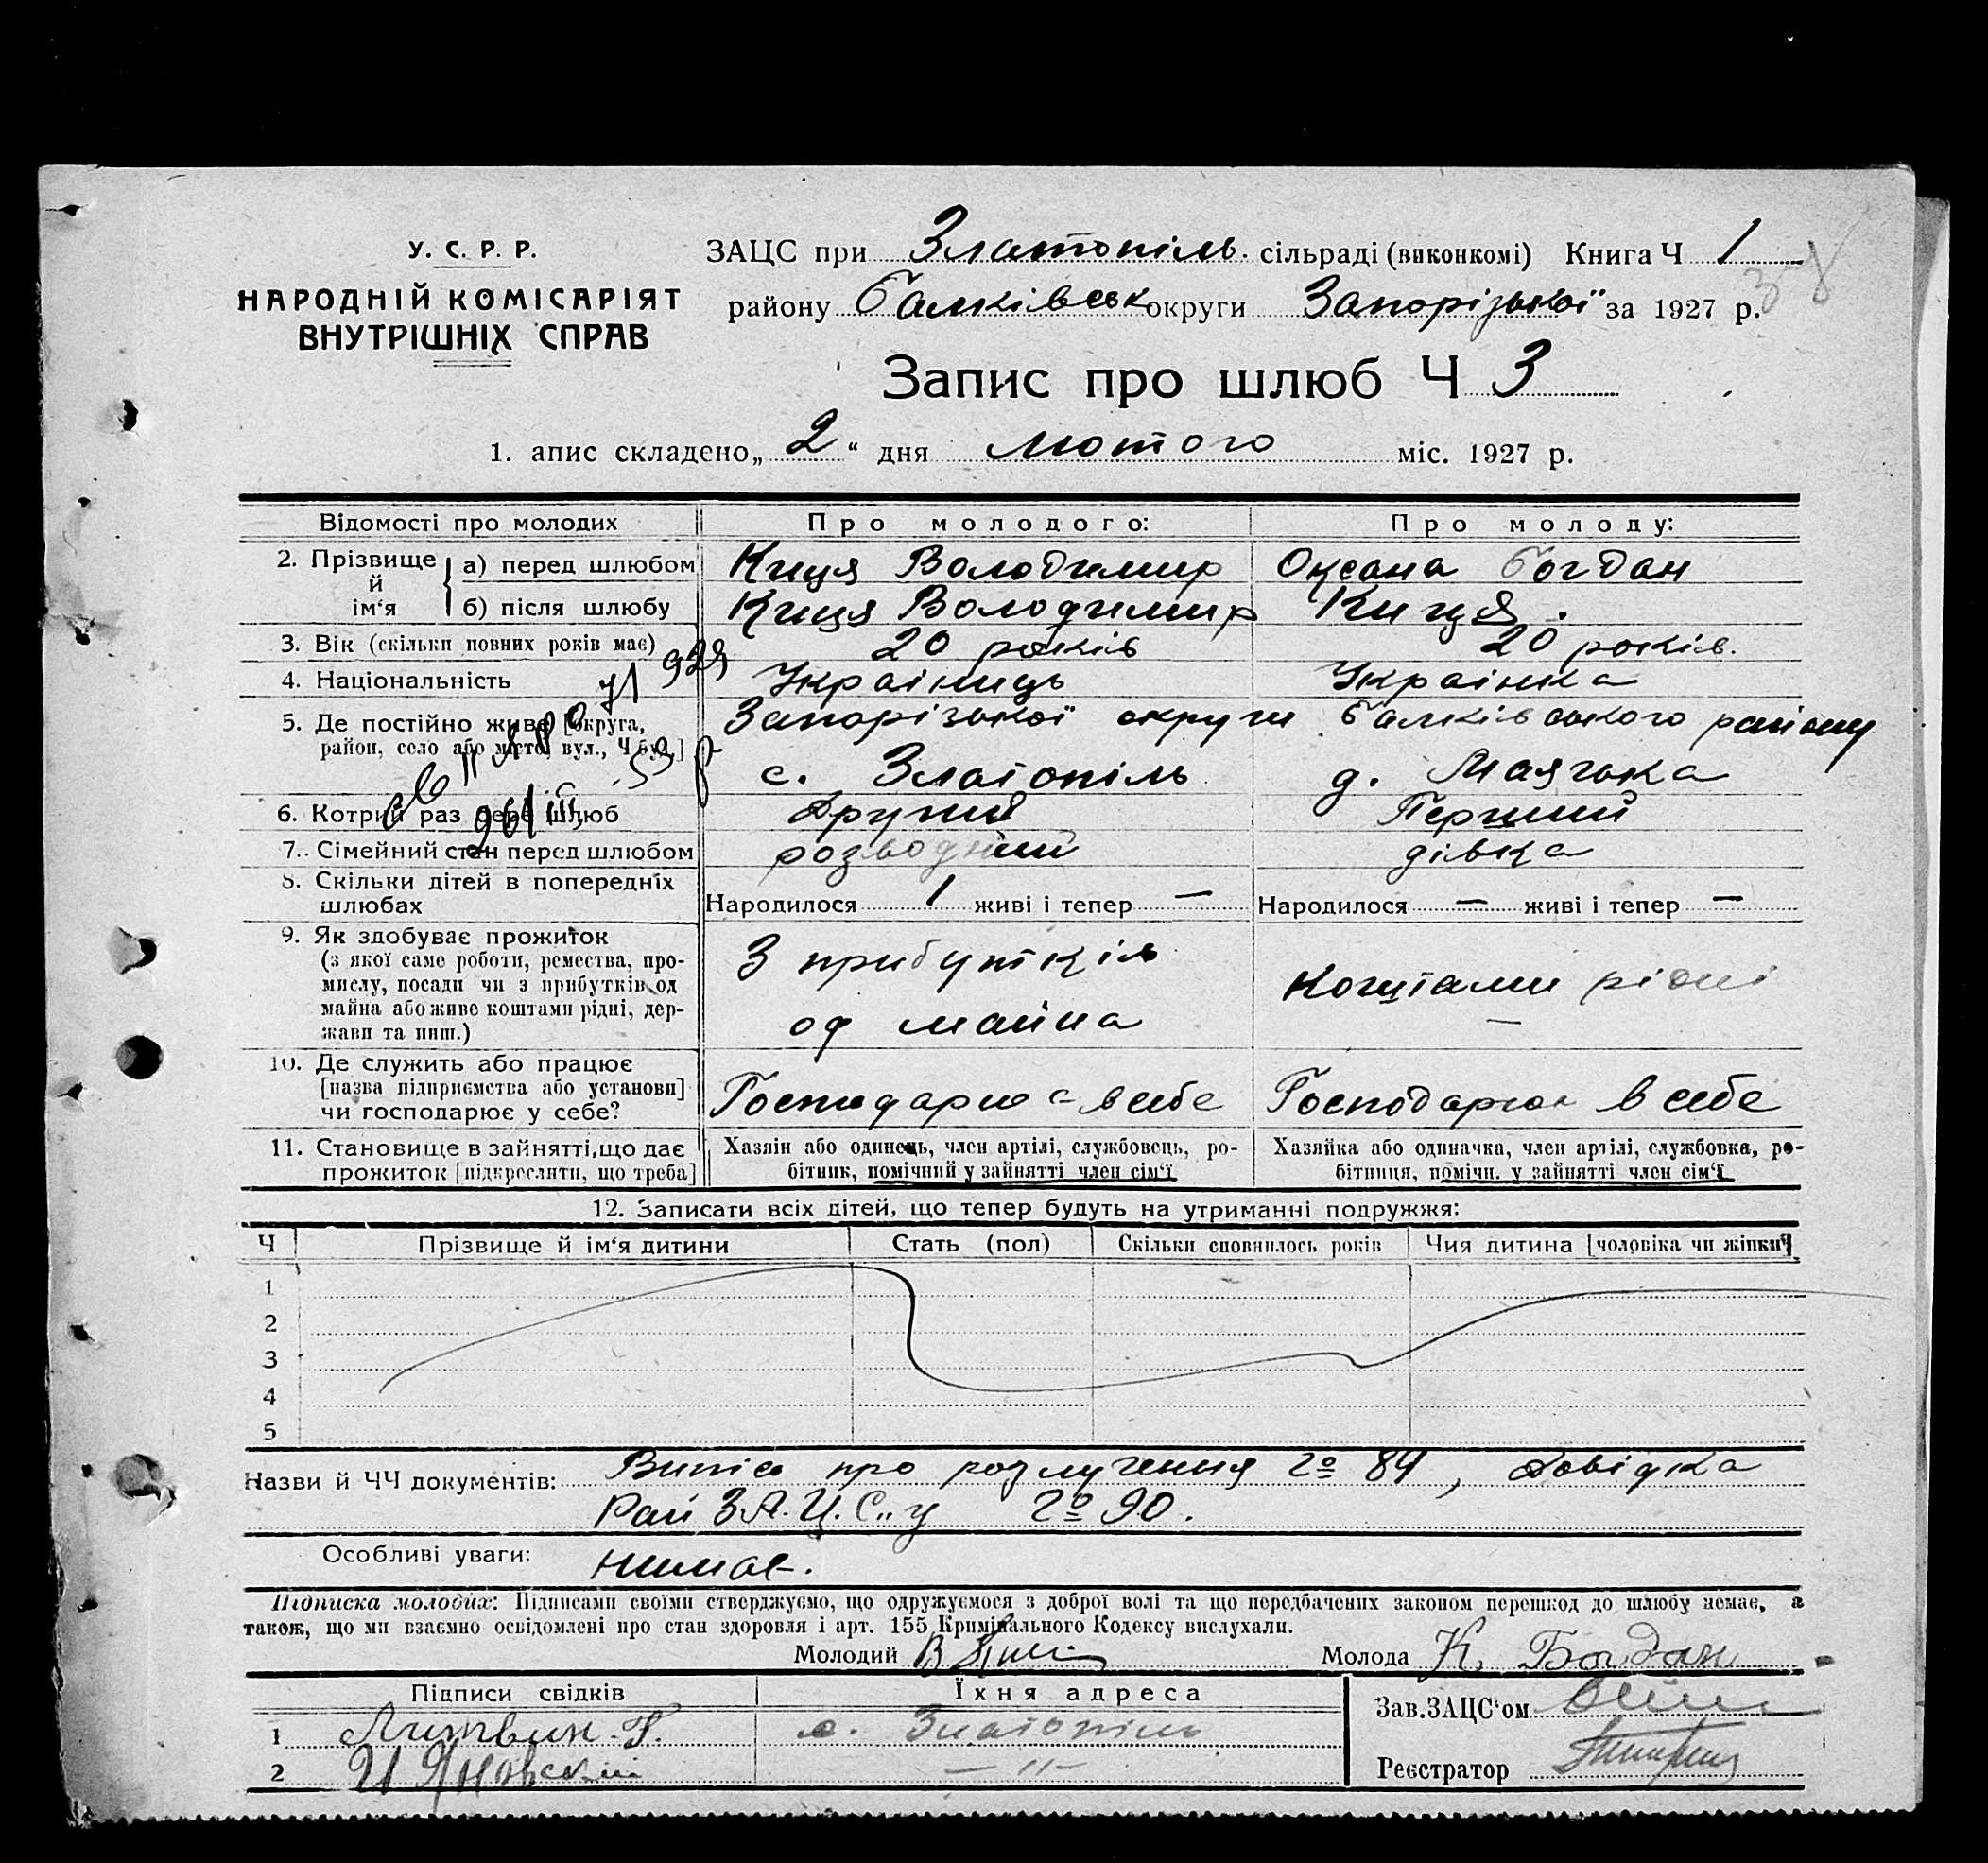 У. С. Р. Р.
НАРОДНІЙ КОМІСАРІЯТ
ВНУТРІШНІХ СПРАВ
ЗАЦС при Златопіль. сільраді (виконкомі) Книга Ч 1
району Балківськ округи Запорізької за 1927 р.
38
Запис про шлюб Ч 3
1. апис складено „2“ дня лютого міс. 1927 р.
Відомості про молодих Про молодого: Про молоду:
2. Прізвище й ім‘я а) перед шлюбом Киця Володимир Оксана Богдан
б) після шлюбу Киця Володимир Киця.
3. Вік (скільки повних років має) 20 років 20 років.
4. Національність Украінець Украінка
5. Де постійно живе [округа, район, село або місто, вул., Ч буд.] Запорізької округи Балківського району
с. Златопіль д. Маячька
6. Котрий раз бере шлюб Другий Перший
7. Сімейний стан перед шлюбом розводний дівка
8. Скільки дітей в попередніх шлюбах Народилося 1 живі і тепер — Народилося — живі і тепер —
9. Як здобуває прожиток
(з якої саме роботи, ремества, про-
мислу, посади чи з прибутків од
майна або живе коштами рідні, дер-
жави та инш.)
З прибутків
од майна
Коштами рідні
—
10. Де служить або працює
[назва підприємства або установи]
чи господарює у себе?
Господарює в себе Господарює в себе
11. Становище в зайнятті, що дає
прожиток [підкреслити, що треба]
Хазяін або одинець, член артілі, службовець, ро-
бітник, помічний у зайнятті член сім‘ї
Хазяйка або одиначка, член артілі, службовка, ро-
бітниця, помічн. у зайнятті член сім‘ї
12. Записати всіх дітей, що тепер будуть на утриманні подружжя:
Ч Прізвище й ім‘я дитини Стать (пол) Скільки сповнилось років Чия дитина [чоловіка чи жінки]
1
2
3
4
5
Назви й ЧЧ документів: Випіс про розлучення № 84, Довідка
Рай З.А.Ц.С.у № 90.
Особливі уваги: нимає.
Підписка молодих: Підписами своїми стверджуємо, що одружуємося з доброї волі та що передбачених законом перешкод до шлюбу немає, а
також, що ми взаємно освідомлені про стан здоровля і арт. 155 Кримінального Кодексу вислухали.
Молодий Молода К. Богдан
Підписи свідків Їхня адреса
1 Литвин Г. с. Златопіль
2 И Яновский — „ —
Зав. ЗАЦС‘ом
Реєстратор